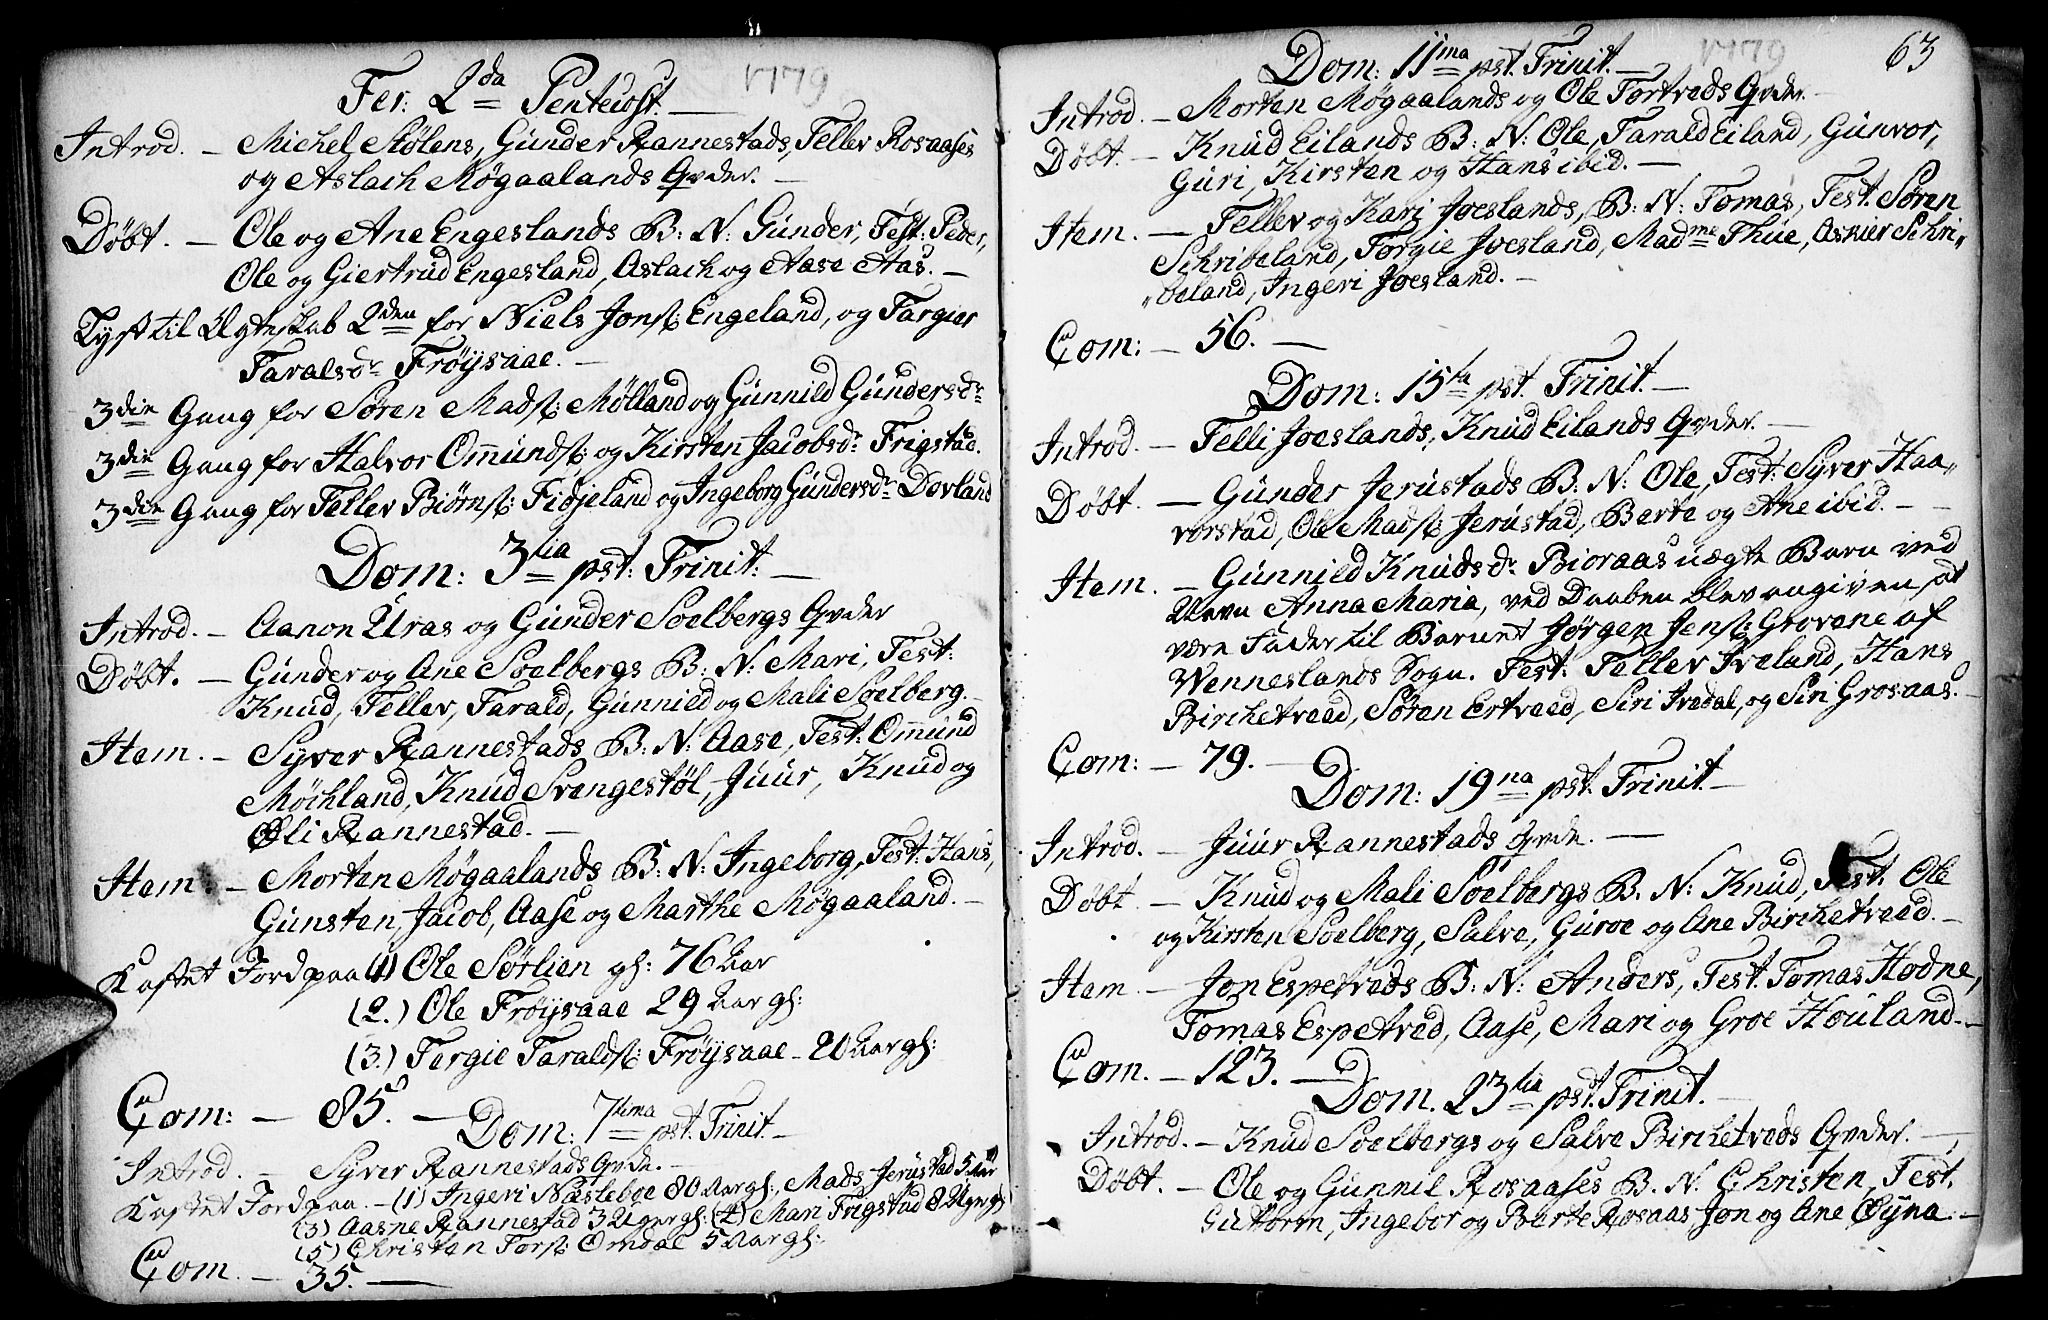 1779
Fer: 2da Pentecost. —
Introd. — Michel Stølens, Gunder Rannestads, Tellev Rosaases
og Aslach Møgaalands Qvder. —
Døbt. — Ole og Ane Engeslands B: N: Gunder, Test: Peder,
Ole og Giertrud Engesland, Aslach og Aase Aas. —
Lyst til Ægteskab 2den for Niels Jonß: Engeland, og Targier
Taralsdr Frøysaae. —
3die Gang for Søren Madß: Mølland og Gunnild Gundersdr
3die Gang for Halvor Omundß: og Kirsten Jacobsdr Frigstad.
3die Gang for Tellev Biørnß: Fiøjeland og Ingeborg Gundersdr Dovland
Dom: 3tia pst: Trinit: —
Introd. — Aanon Uras og Gunder Soelbergs Qvder
Døbt. — Gunder og Ane Soelbergs B: N: Mari, Test:
Knud, Tellev, Tarald, Gunnild og Mali Soelberg. —
Item. — Syver Rannestads B: N: Aase, Test: Omund
Møchland, Knud Svangestøl, Juur, Knud og
Oli Rannestad. —
Item. — Morten Møgaalands B: N: Ingeborg, Test: Hans,
Gunsten, Jacob, Aase og Marthe Møgaaland. —
Kastet Jord paa (1) Ole Sørlien gl: 76 Aar
(2.) Ole Frøysaae 29 Aar gl:
(3.) Tergie Taraldß: Frøysaae — 20 Aar gl:
Com: — 85. —
Dom: 7tima pst. Trinit. —
Introd. — Syver Rannestads Qvde. —
Kastet Jord paa. — (1) Ingeri Næsleboe 80 Aar gl:, Mads Jerustad 5 Aar
(3) Aasne Rannestad 3 Uger gl: (4) Mari Frigstad 8 Uger gl:
(5) Christen Torß: Omdal 5 Aar gl:
Com. — 35. —
63
1779
Dom: 11ma pst. Trinit. —
Introd. — Morten Møgaalands og Ole Tortveds Qvder. —
Døbt. — Knud Eilands B: N: Ole, Tarald Eiland, Gunvor,
Guri, Kirsten og Hans ibid. —
Item. — Tellev og Kari Joeslands, B: N: Tomas, Test. Søren
Schribeland, Torgie Joesland, Madme Thue, Asnier Schri„
„beland, Ingeri Joesland. —
Com: — 56. —
Dom: 15ta pst. Trinit. —
Introd. — Telli Joeslands, Knud Eilands Qvder. —
Døbt. — Gunder Jerustads B: N: Ole, Test: Syver Haa„
vorstad, Ole Madß: Jerustad, Berte og Ane ibid. —
Item. — Gunnild Knudsdr Bioraas uægte Barn ved
Navn Anna Maria, ved Daaben blev angiven, at
være Fader til Barnet Jørgen Jenß: Grovene af
Wenneslands Sogn. Test: Tellev Iveland, Hans
Birchetveed, Søren Ertveed, Siri Ivedal, og Siri Grosaas. —
Com: — 79. —
Dom: 19na pst. Trinit. —
Introd. — Juur Rannestads Qvde. —
Døbt. — Knud og Mali Soelbergs B. N: Knud, Test: Ole
og Kirsten Soelberg, Salve, Guroe og Ane Birchetveed. —
Item. — Jon Espetveds B: N: Anders, Test. Tomas Hodne,
Tomas Espetved, Aase, Mari og Groe Houland. —
Com. — 123. —
Dom. 23tia pst. Trinit. —
Introd. — Knud Soelbergs og Salve Birchetveds Qvder. —
Døbt. — Ole og Gunnil Rosaases B. N. Christen, Test.
Guttorm, Ingebor og Berte Rosaas, Jon og Ane Øyna. —